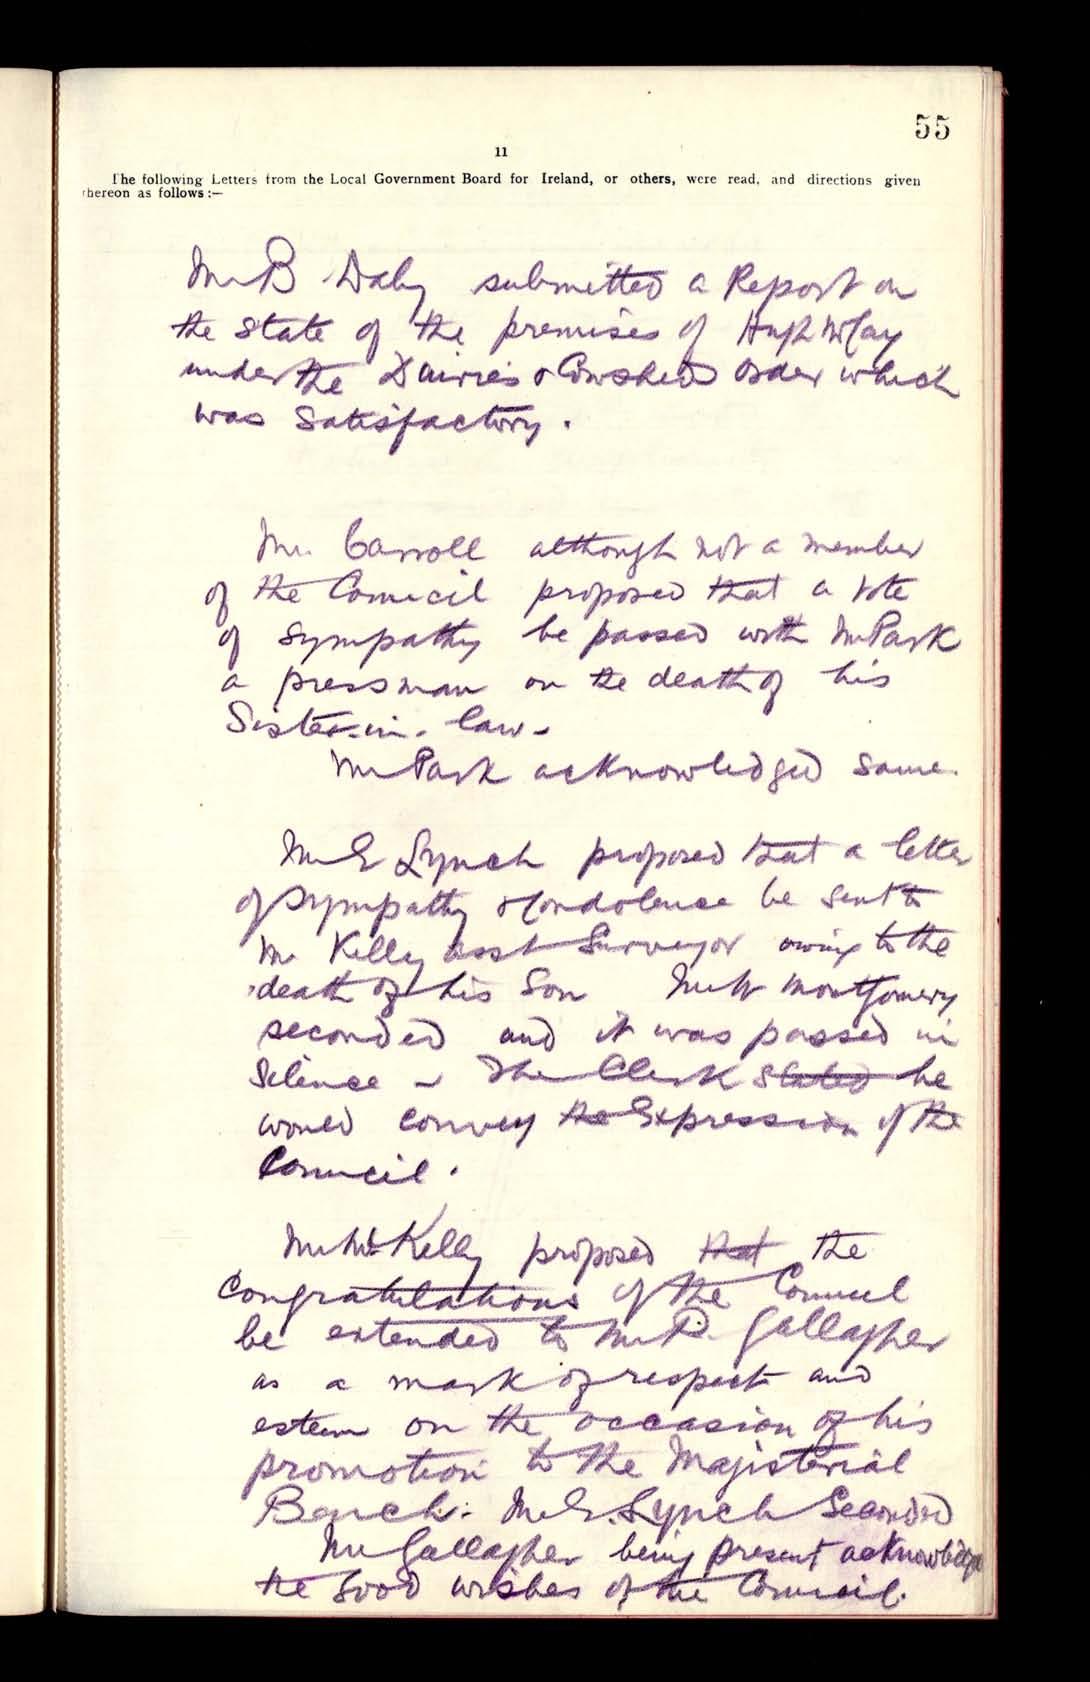 55
11
The following Letters from the Local Government Board for Ireland, or others, were read, and directions given
thereon as follows :—
Mr B Daly submitted a Report on
the state of the premises of Hugh McCay
under the Dairies & Cowsheds order which
was satisfactory.
Mr. Carroll although not a member
of the Council proposed that a vote
of sympathy be passed with Mr Park
a pressman on the death of his
Sister-in-law-
Mr Park acknowledged same.
Mr E Lynch proposed that a letter
of Sympathy & Condolence be sent to
Mr Kelly Asst Surveyor owing to the
death of his Son Mr W Montgomery
seconded and it was passed in
Silence - The Clerk stated he
would convey the Expression of the
Council.
Mr Wm Kelly proposed that the
Congratulations of the Council
be extended to Mr P. Gallagher
as a mark of respect and
esteem on the occasion of his
promotion to the Magisterial
Bench. Mr E. Lynch Seconded
Mr Gallagher being present acknowledged
the good wishes of the Council.